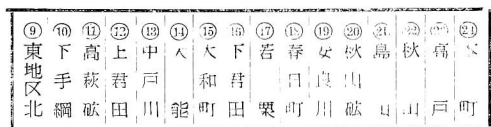 ⑨東地区北
⑩下手綱
⑪高萩砿
⑫上君田
⑬中戸川
⑭大能
⑮大和町
⑯下君田
⑰若栗
⑱春日町
⑲安良川
⑳秋山砿
㉑島
㉒秋山
㉓高戸
㉔町